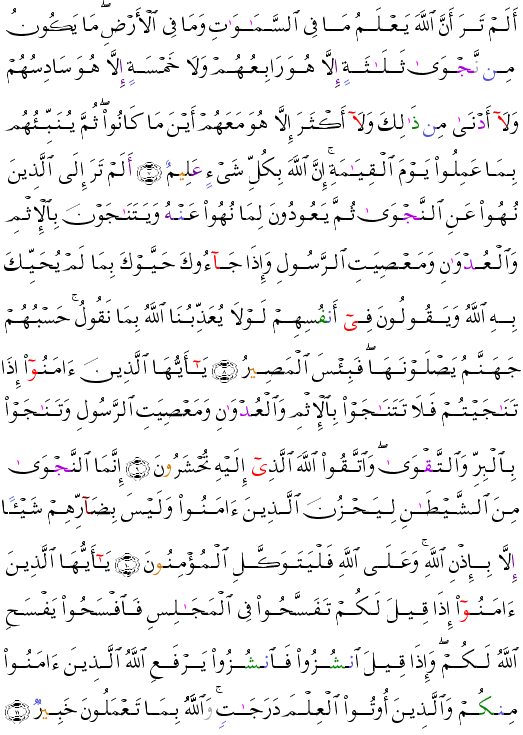 أَلَمْ تَرَ أَنَّ ٱللَّهَ يَعْلَمُ مَا فِى ٱلسَّمَٰوَٰتِ وَمَا فِى ٱلْأَرْضِ ۖ مَا يَكُونُ
مِن نَّجْوَىٰ ثَلَٰثَةٍ إِلَّا هُوَ رَابِعُهُمْ وَلَا خَمْسَةٍ إِلَّا هُوَ سَادِسُهُمْ
وَلَآ أَدْنَىٰ مِن ذَٰلِكَ وَلَآ أَكْثَرَ إِلَّا هُوَ مَعَهُمْ أَيْنَ مَا كَانُوا۟ ۖ ثُمَّ يُنَبِّئُهُم
بِمَا عَمِلُوا۟ يَوْمَ ٱلْقِيَٰمَةِ ۚ إِنَّ ٱللَّهَ بِكُلِّ شَىْءٍ عَلِيمٌ ۝٧ أَلَمْ تَرَ إِلَى ٱلَّذِينَ
نُهُوا۟ عَنِ ٱلنَّجْوَىٰ ثُمَّ يَعُودُونَ لِمَا نُهُوا۟ عَنْهُ وَيَتَنَٰجَوْنَ بِٱلْإِثْمِ
وَٱلْعُدْوَٰنِ وَمَعْصِيَتِ ٱلرَّسُولِ وَإِذَا جَآءُوكَ حَيَّوْكَ بِمَا لَمْ يُحَيِّكَ
بِهِ ٱللَّهُ وَيَقُولُونَ فِىٓ أَنفُسِهِمْ لَوْلَا يُعَذِّبُنَا ٱللَّهُ بِمَا نَقُولُ ۚ حَسْبُهُمْ
جَهَنَّمُ يَصْلَوْنَهَا ۖ فَبِئْسَ ٱلْمَصِيرُ ۝٨ يَٰٓأَيُّهَا ٱلَّذِينَ ءَامَنُوٓا۟ إِذَا
تَنَٰجَيْتُمْ فَلَا تَتَنَٰجَوْا۟ بِٱلْإِثْمِ وَٱلْعُدْوَٰنِ وَمَعْصِيَتِ ٱلرَّسُولِ وَتَنَٰجَوْا۟
بِٱلْبِرِّ وَٱلتَّقْوَىٰ ۖ وَٱتَّقُوا۟ ٱللَّهَ ٱلَّذِىٓ إِلَيْهِ تُحْشَرُونَ ۝٩ إِنَّمَا ٱلنَّجْوَىٰ
مِنَ ٱلشَّيْطَٰنِ لِيَحْزُنَ ٱلَّذِينَ ءَامَنُوا۟ وَلَيْسَ بِضَآرِّهِمْ شَيْـًٔا
إِلَّا بِإِذْنِ ٱللَّهِ ۚ وَعَلَى ٱللَّهِ فَلْيَتَوَكَّلِ ٱلْمُؤْمِنُونَ ۝١٠ يَٰٓأَيُّهَا ٱلَّذِينَ
ءَامَنُوٓا۟ إِذَا قِيلَ لَكُمْ تَفَسَّحُوا۟ فِى ٱلْمَجَٰلِسِ فَٱفْسَحُوا۟ يَفْسَحِ
ٱللَّهُ لَكُمْ ۖ وَإِذَا قِيلَ ٱنشُزُوا۟ فَٱنشُزُوا۟ يَرْفَعِ ٱللَّهُ ٱلَّذِينَ ءَامَنُوا۟
مِنكُمْ وَٱلَّذِينَ أُوتُوا۟ ٱلْعِلْمَ دَرَجَٰتٍ ۚ وَٱللَّهُ بِمَا تَعْمَلُونَ خَبِيرٌ ۝١١